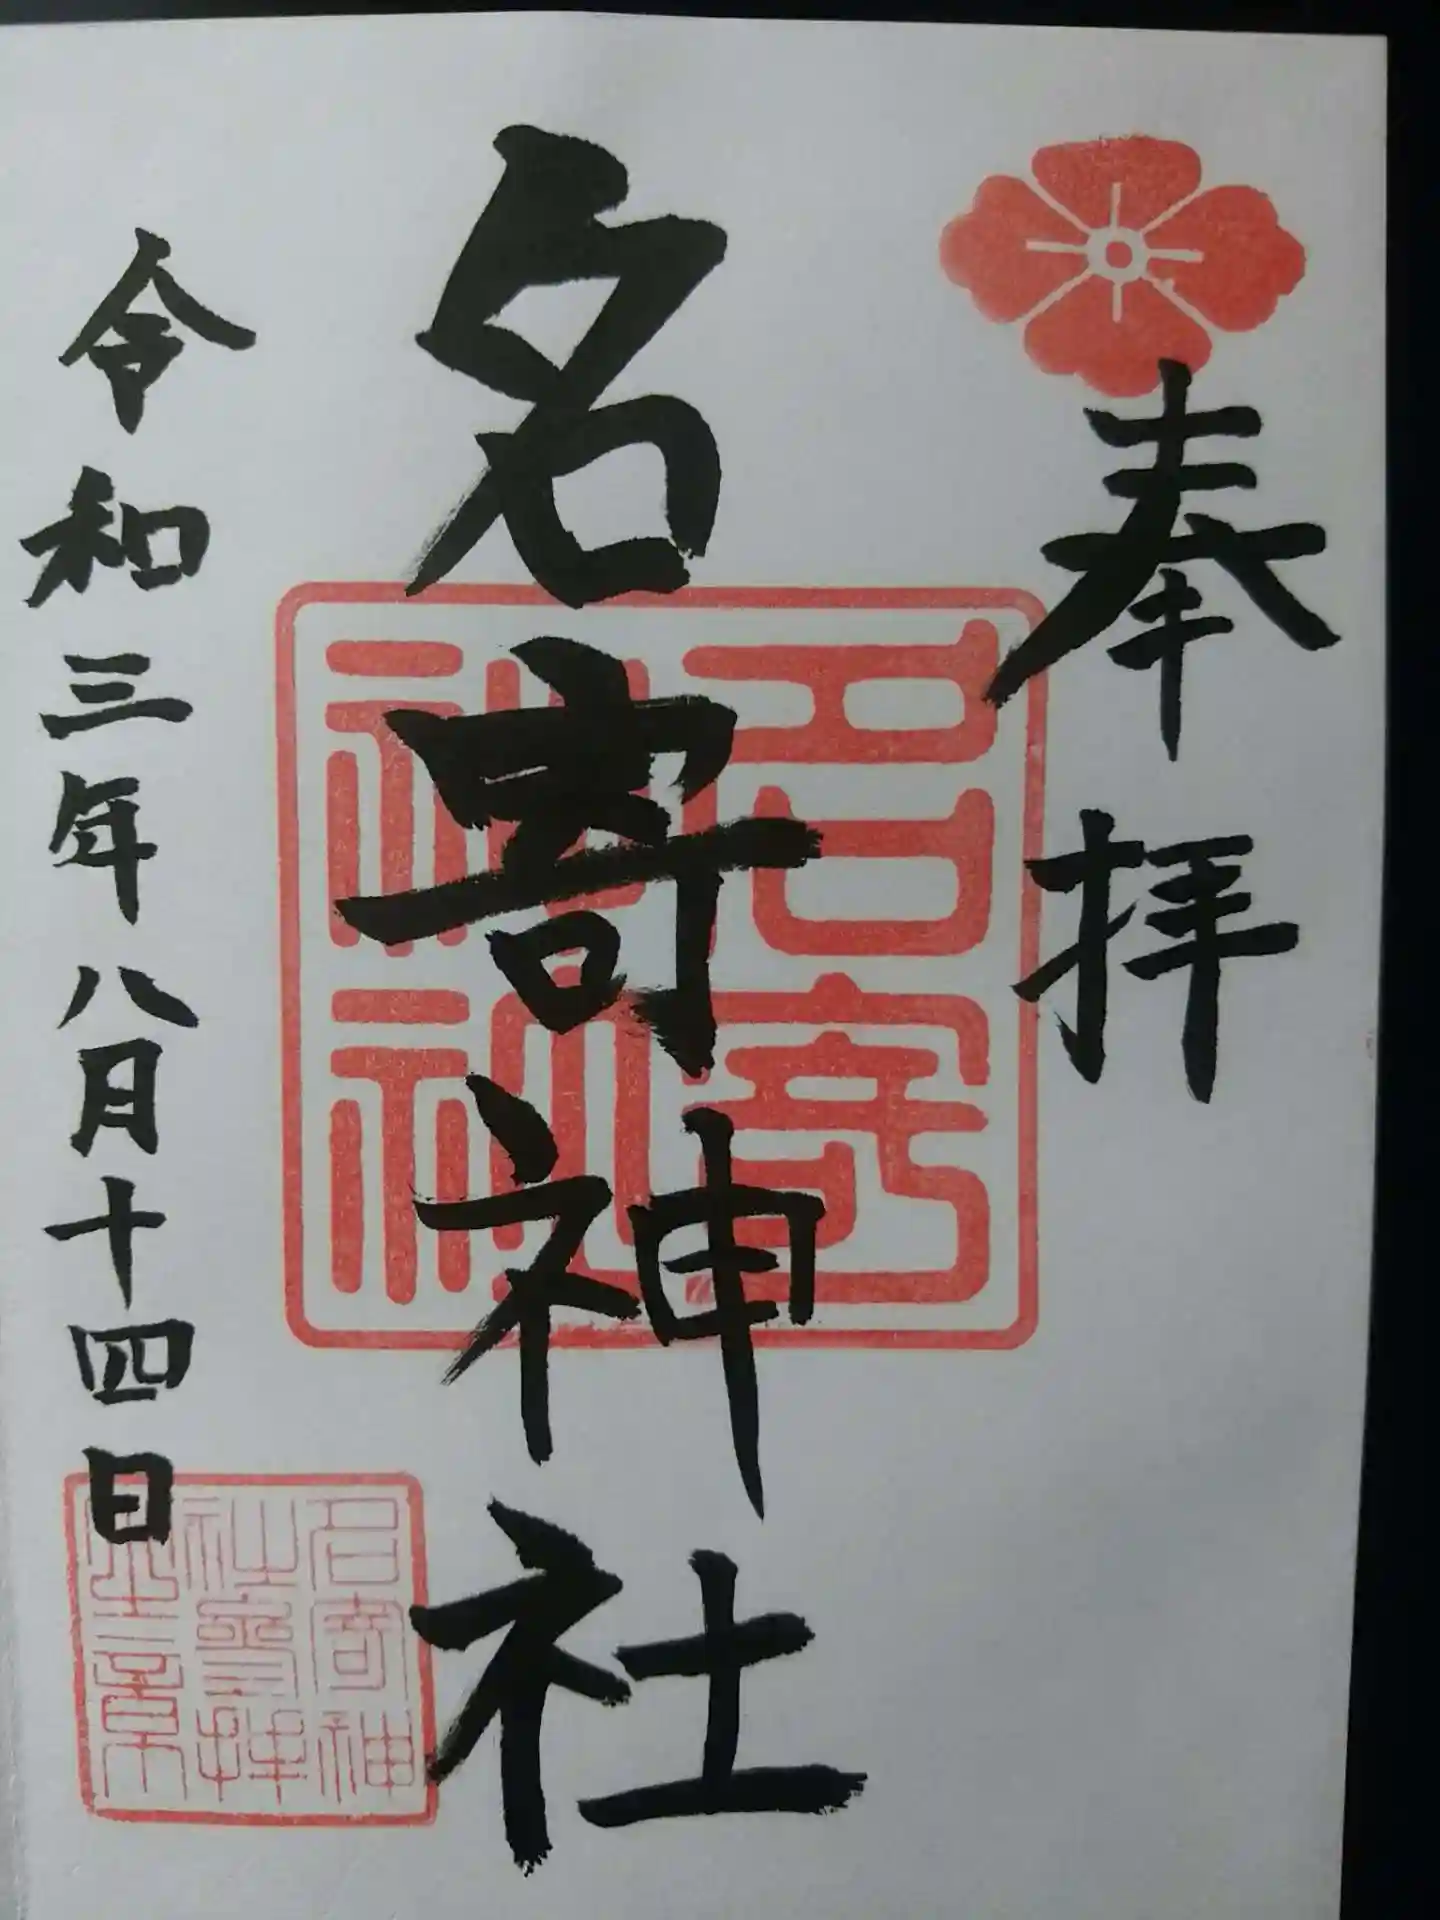 奉拝
名寄神社
名寄
神社
令和三年八月十四日
名寄神
社参拝